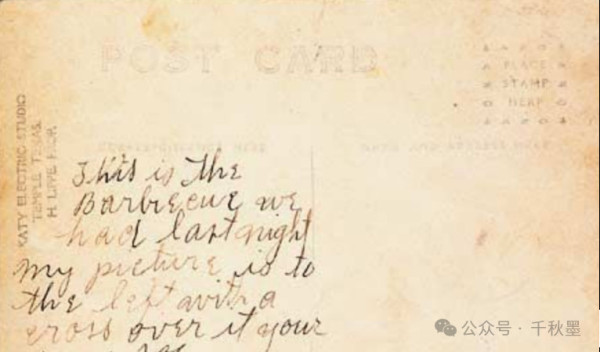 POST CARD
PLACE
STAMP
HERE
KATY ELECTRIC STUDIO
TEMPLE TEXAS.
H. LIPPE PROP.
CORRESPONDENCE HERE
NAME AND ADDRESS HERE
This is the
Barbecue we
had last night
my picture is to
the left with a
cross over it your
公众号 · 千秋墨